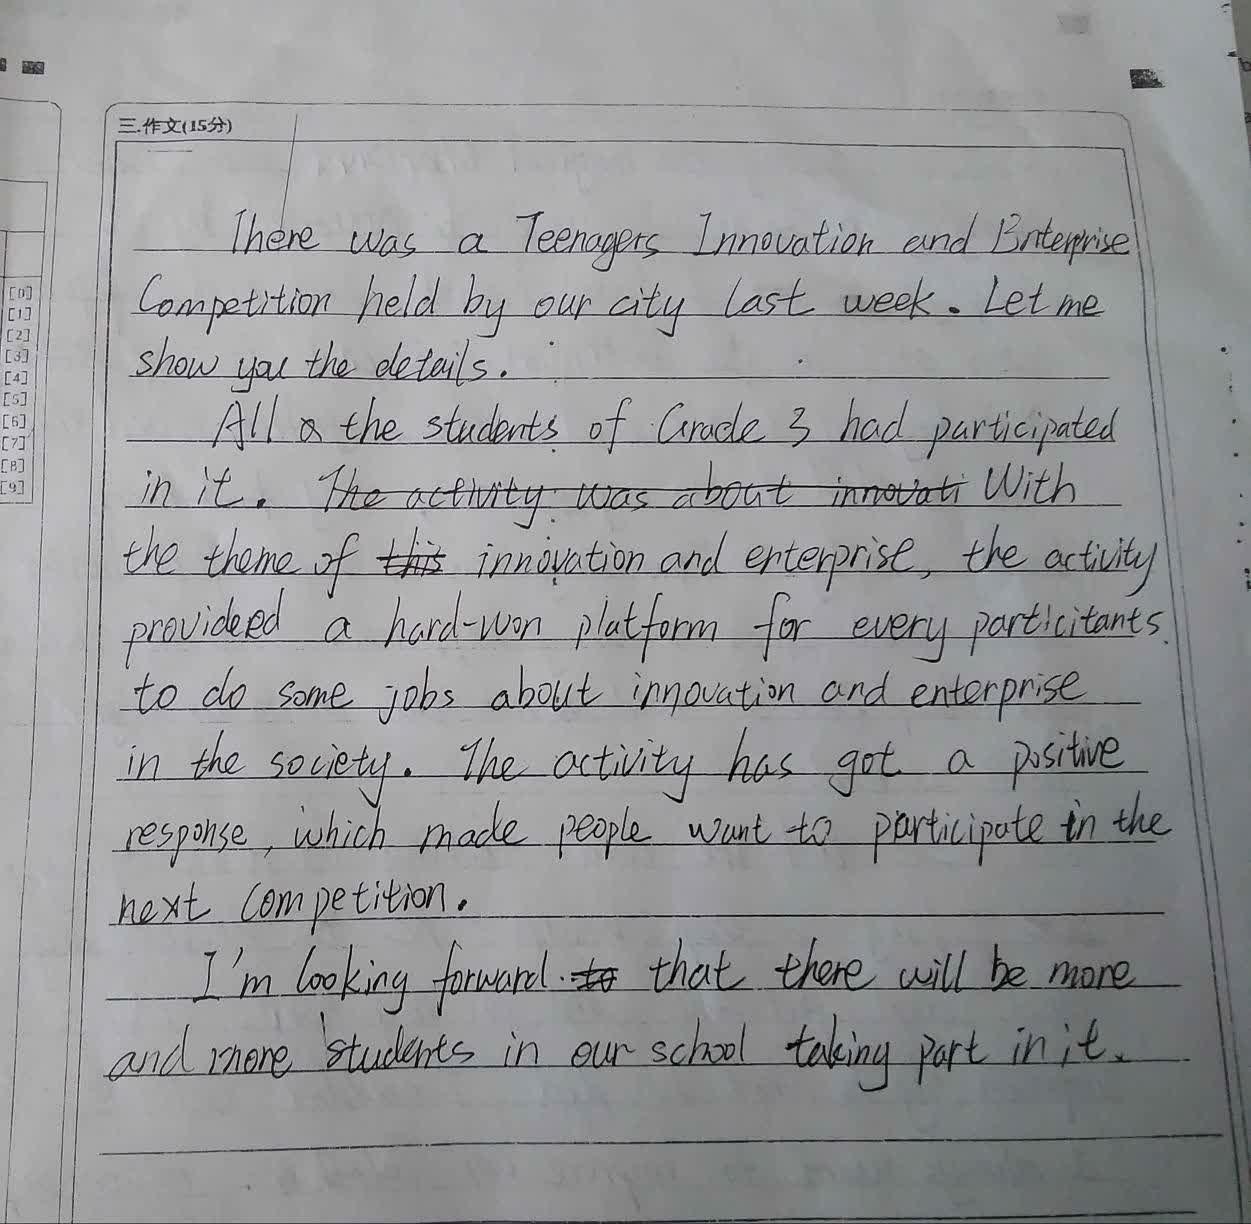 三.作文(15分)
There was a Teenagers Innovation and Enterprise
Competition held by our city last week. Let me
show you the details.
All a the students of Grade 3 had participated
in it. The activity was about innovati With
the theme of this innovation and enterprise, the activity
provideed a hard-won platform for every particitants
to do some jobs about innovation and enterprise
in the society. The activity has got a positive
response, which made people want to participate in the
next competition.
I'm looking forward to that there will be more
and more students in our school taking part in it.
[0]
[1]
[2]
[3]
[4]
[5]
[6]
[7]
[8]
[9]